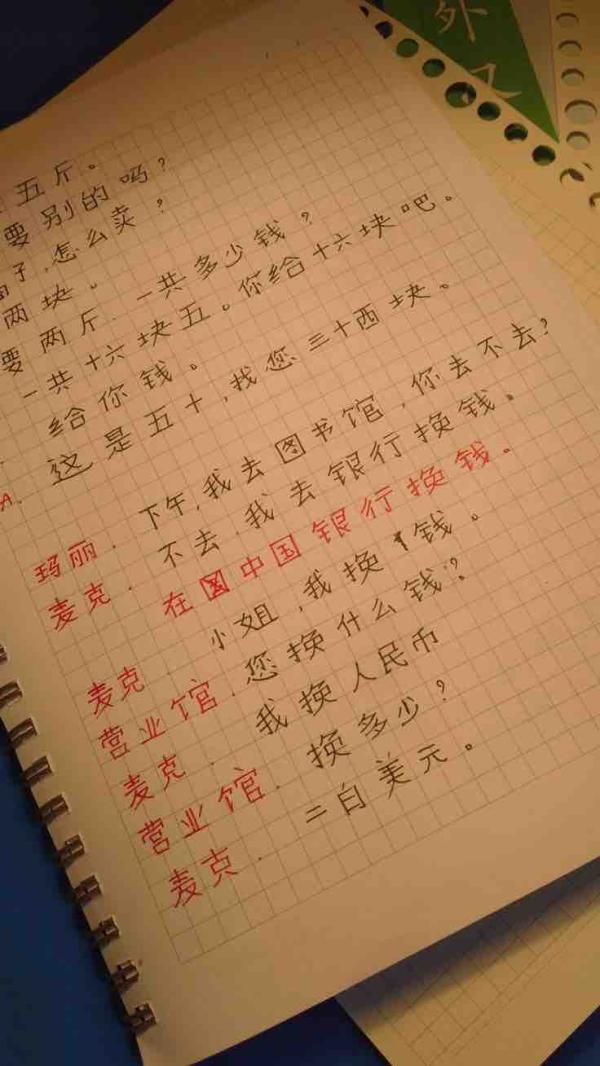 外
五斤。
要别的吗？
子,怎么卖？
两块。
要两斤.一共多少钱？
一共十六块五。你给十六块吧。
给你钱。
这是五十,找您三十西块。
玛丽. 下午,我去图书馆,你去不去?
麦克. 不去,我去银行换钱。
在中国银行换钱。
麦克. 小姐,我换钱。
营业馆. 您换什么钱?
麦克. 我换人民币
营业馆. 换多少?
麦克. 二白美元。